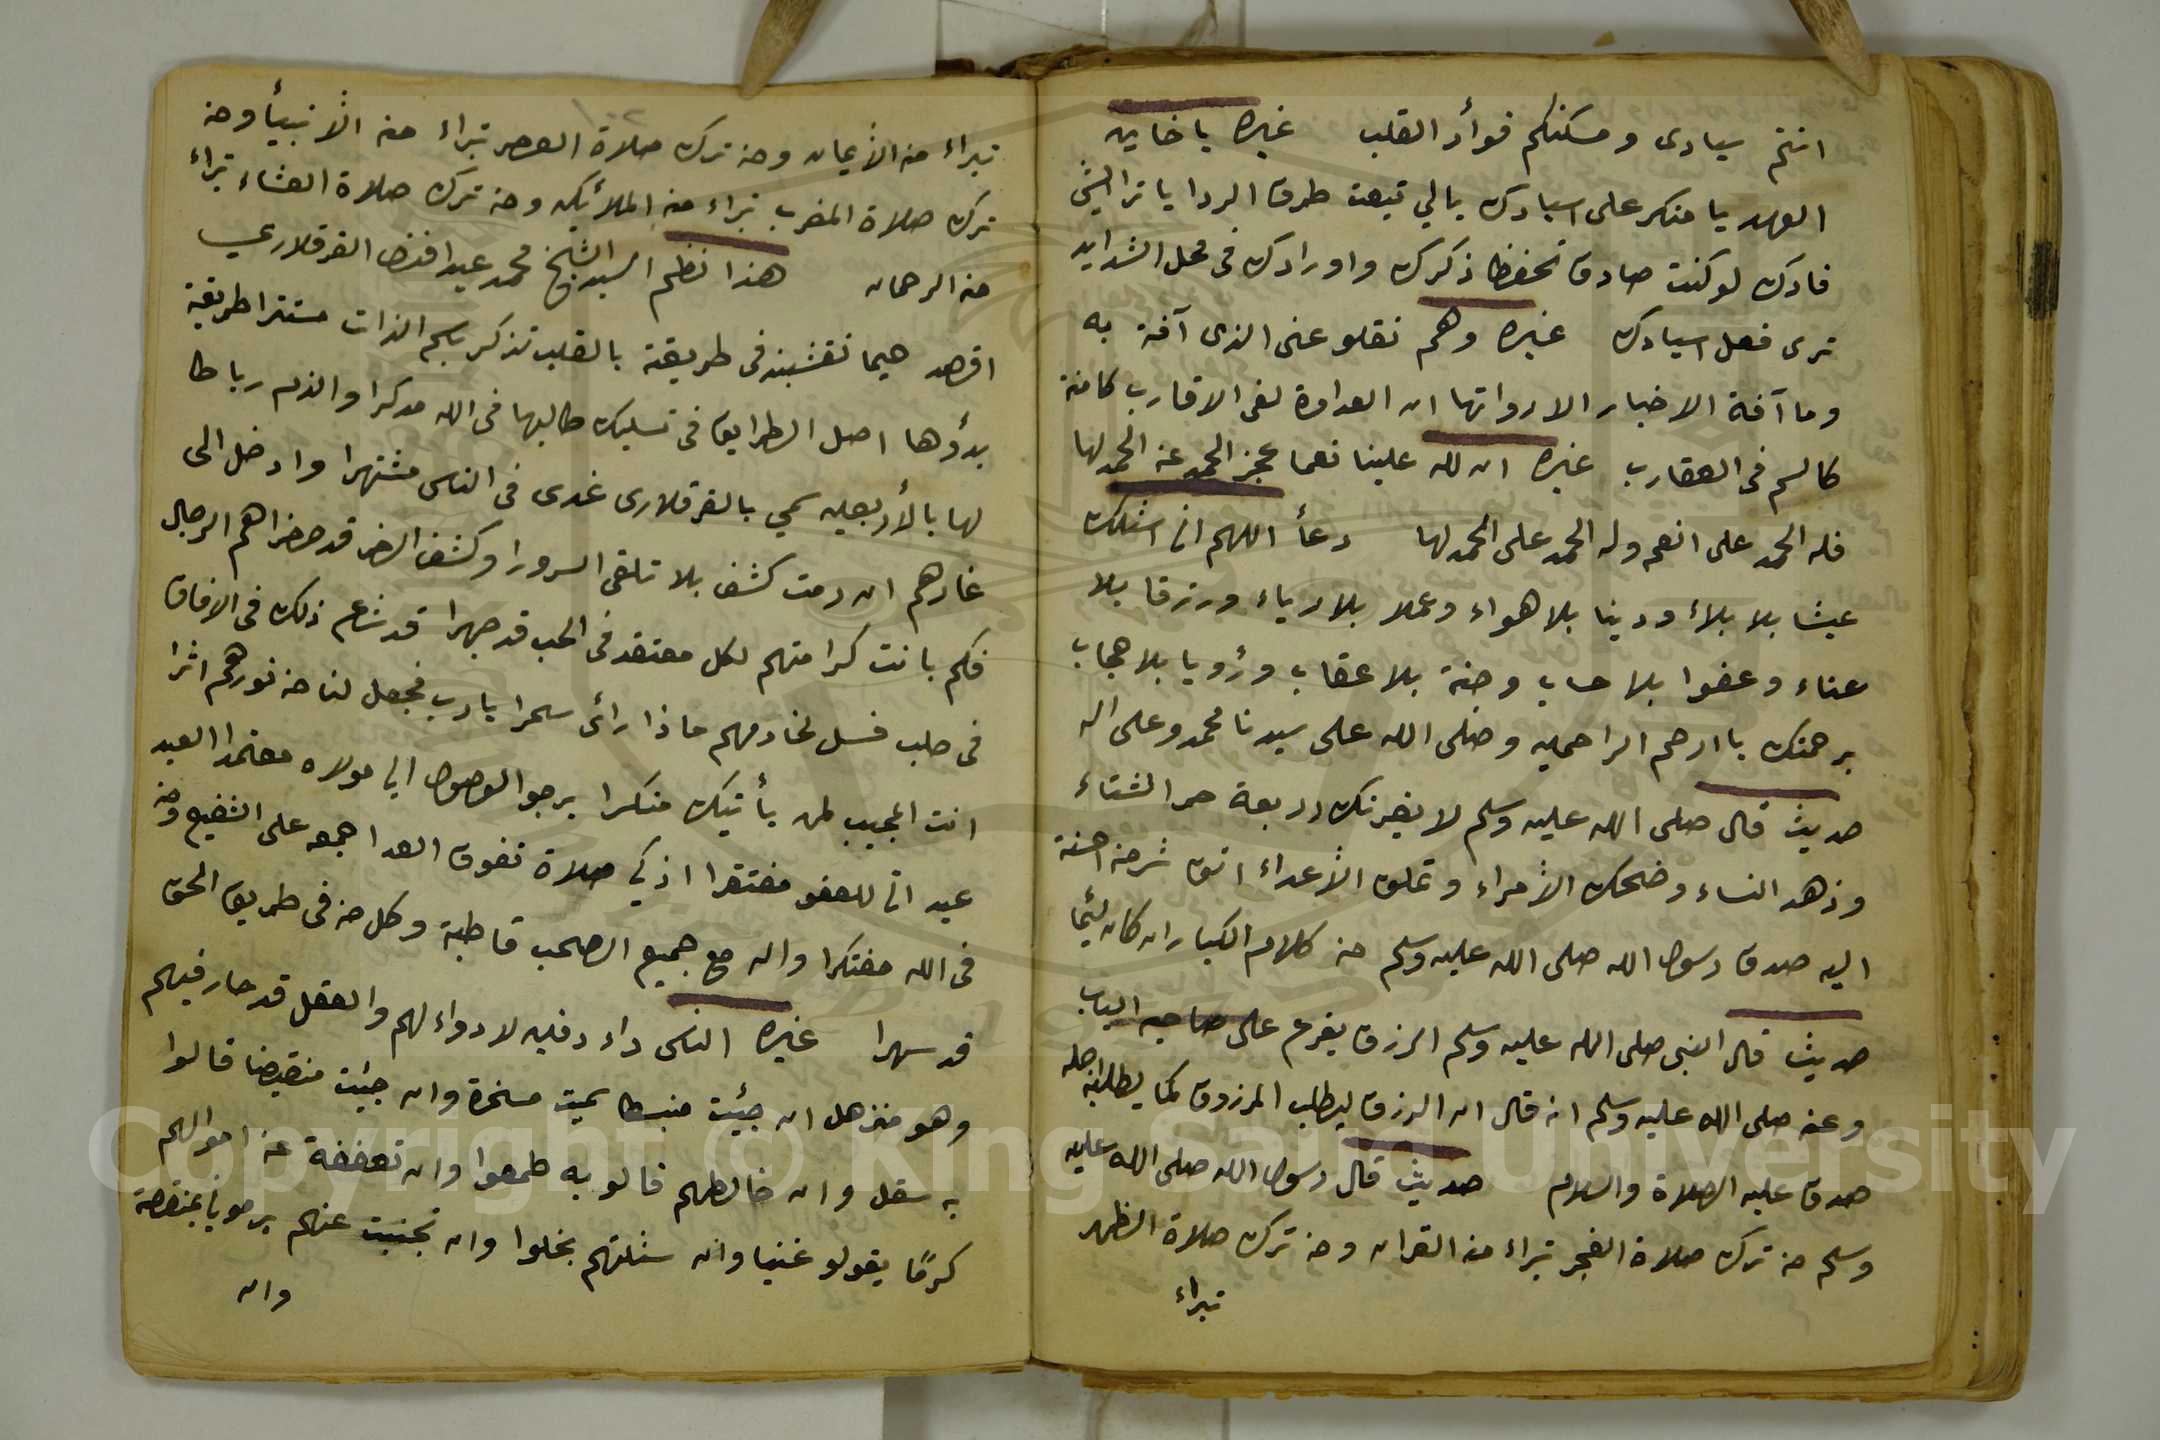 انتم سيادى ومسكنكم فوأد القلب غيره يا خاين
العهد يا منكر على اسيادك يالي تبعت طرق الردا يا ترا ايش
فادك لو كنت صادق تحفظ ذكرك واورادك في محل الشدايد
ترى فعل اسيادك غيره وهم نقلو عنى الذى آفة به
وما آفة الاخبار الا رواتها ان العداوة لفى الاقارب كامنة
كالسم فى العقارب غيره ان لله علينا نعما عجز الحمد عن الحمد لها
فله الحمد على انعم وله الحمد على الحمد لها دعأ اللهم انى اسئلك
عيشا بلا بلأ ودينا بلا هواء وعملا بلا رياء ورزقا بلا
عناء وعفوا بلا حساب وجنة بلا عقاب ورؤيا بلا حجاب
برحمتك يا ارحم الراحمين وصلى الله على سيدنا محمد وعلى اله
حديث قال صلى الله عليه وسلم لا يغرنك اربعة حر الشتاء
وزهد النساء وضحك الأمراء وتملق الأعداء اتق شر من احسنة
اليه صدق رسول الله صلى الله عليه وسلم من كلام الكبار ان كان لئيما
حديث قال النبى صلى الله عليه وسلم الرزق يقرع على صاحبه الباب
وعنه صلى الله عليه وسلم انه قال ان الرزق ليطلب المرزوق كما يطلبه اجله
صدق عليه الصلاة والسلام حديث قال رسول الله صلى الله عليه
وسلم من ترك صلاة الفجر تبراء منه القران ومن ترك صلاة الظهر
تبراء
تبراء منه الأيمان ومن ترك صلاة العصر تبراء منه الأنبيأ ومن
ترك صلاة المغرب تبراء منه الملأيكه ومن ترك صلاة العشاء تبراء
منه الرحمان هذا نظم السيد الشيخ محمد عيد افندى القرقلارى
اقصد حيما نقشبند فى طريقة بالقلب تذكر بسم الذات مستترا طريقة
بدؤوها اصل الطرايق فى تسليك طالبها فى الله مدكرا والذم رباطا
لها بالأربعين سمي بالقرقلارى غدى فى الناس مشتهرا وادخل الى
غارهم ان رمت كشف بلا تلقى السرورا وكشف الضر قد حضرا هم الرجال
فكم بانت كرامتهم لكل معتقد فى الحب قد جهرا قد شاع ذلك فى الافاق
فى حلب فسل لخادمهم ماذا رائى سحرا يا رب فجعل لنا من نورهم اثرا
انت المجيب لمن يأتيك منكسرا يرجو الوصول الى مولاه معتمدا العبد
عيد اتى للعفو مفتقرا ازكي صلاة تفوق العدا جمع على الشفيع ومن
فى الله مفتكرا واله مع جميع الصحب قاطبة وكل من فى طريق الحق
قد سهرا غيره الناس داء دفين لا دواء لهم والعقل قد حار فيهم
وهو منزهل ان جيئت منبسطا سميت مسخرة وان جيئت منقبضا قالوا
به سقل وان خالطهم قالو به طمعوا وان تعففة عن اموالهم
كرمًا يقولو غنيا وان سئلتهم بخلوا وان تجنبت عنهم يرمونى بمنقصة
وان
Copyright © King Saud University